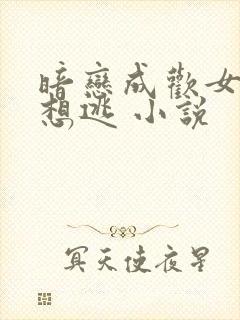 暗戀成歡女
想逃 小說
冥天使夜星